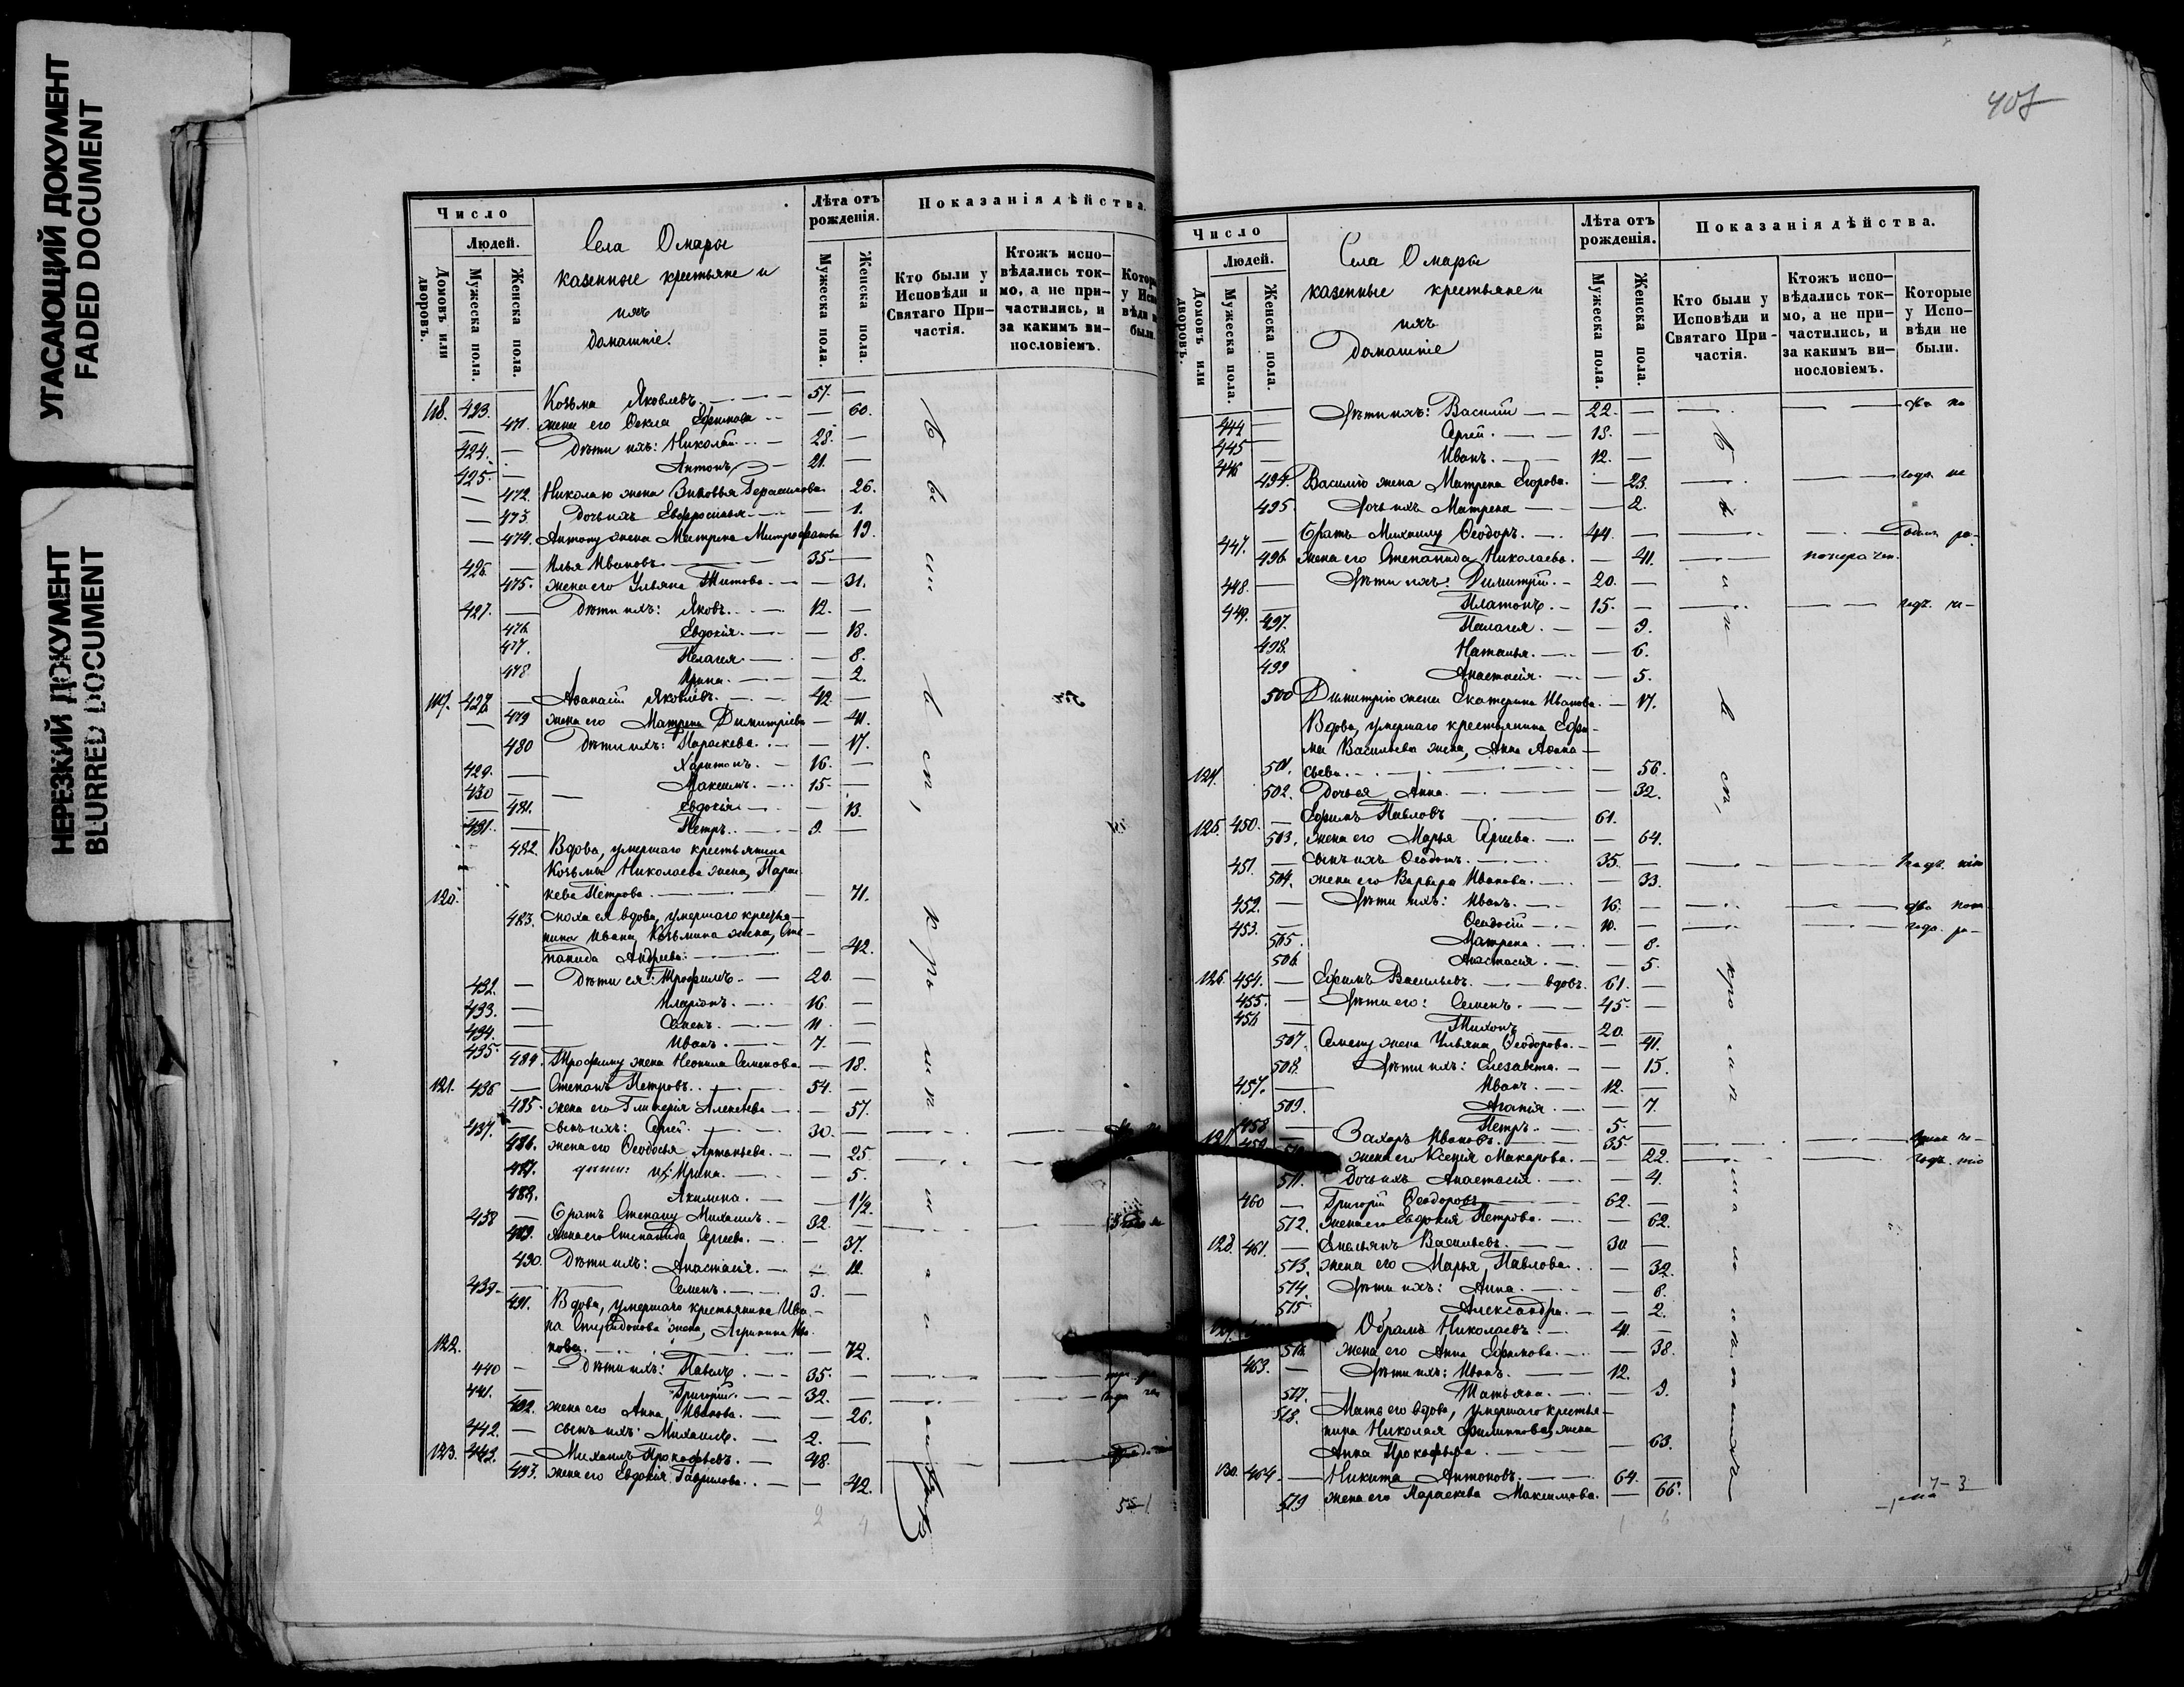 УГАСАЮЩИЙ ДОКУМЕНТ
FADED DOCUMENT
НЕРЕЗКИЙ ДОКУМЕНТ
BLURRED DOCUMENT
Число
Людей.
Домовъ или дворовъ.
Мужеска пола.
Женска пола.
Села Омары
казенные крестьяне и
ихъ
домашніе.
Лѣта отъ рожденія.
Мужеска пола.
Женска пола.
Показанія дѣйства.
Кто были у Исповѣди и Святаго Причастія.
Ктожъ исповѣдались токмо, а не причастились, и за какимъ винословіемъ.
118. 423. Козьма Яковлевъ. 57.
471. жена его Ѳекла Ефимова 60.
424. Дѣти ихъ: Николай 28.
425. Антонъ 21.
472. Николаю жена Зиновья Герасимова 26.
473. Дочь ихъ Евфросинья 1.
474. Антону жена Матрена Митрофанова 19.
426. Илья Ивановъ 35
475. жена его Ульяна Титова 31.
427. Дѣти ихъ: Яковъ 12.
476. Евдокія 18.
477. Пелагея 8.
478. Ирина 2.
119. Аѳанасій Яковлевъ 42.
479 жена его Матрена Димитріева 41.
480 Дѣти ихъ: Параскева 17.
429. Харитонъ 16.
430 Максимъ 15.
481. Евдокія 13.
431. Петръ 9.
482. Вдова, умершаго крестьянина
Козьмы Николаева жена, Парас
120. кева Петрова 71.
483. Сноха ея вдова, умершаго крестья-
нина Ивана Козьмина жена, Сте-
панида Андреева 42.
432. Дѣти ея: Трофимъ 20.
433. Иларіонъ 16.
434. Семенъ 11.
435. Иванъ 7.
484. Трофиму жена Неонила Семенова 18.
121. 436 Степанъ Петровъ 54.
485. жена его Гликерія Алексѣева 57.
437. сынъ ихъ: Сергей 30.
486. жена его Ѳеодосья Артамьева 25
487. Ирина 5.
488. Акилина 1½.
438 Братъ Степану Михаилъ 32.
489. жена его Степанида Сергеева 37.
490. Дѣти ихъ: Анастасія 12.
439. Семенъ 3.
491. Вдова, умершаго крестьянина Ива-
на Спиридонова жена, Агрипина
122. 72.
440 Дѣти ихъ: Павелъ 35.
441. Григорій 32.
492. жена его Анна Иванова 26.
442. сынъ ихъ: Михаилъ 2.
123. 443. Михаилъ Прокофьевъ 48.
493. жена его Евдокія Гаврилова 42.
Число
Людей.
Домовъ или дворовъ.
Мужеска пола.
Женска пола.
Села Омары
казенные крестьяне и
ихъ
Домашніе
Лѣта отъ рожденія.
Мужеска пола.
Женска пола.
Показанія дѣйства.
Кто были у Исповѣди и Святаго Причастія.
Ктожъ исповѣдались токмо, а не причастились, и за какимъ винословіемъ.
Которые у Исповѣди не были.
444 Дѣти ихъ: Василій 22.
445 Сергей 18.
446 Иванъ 12.
494. Василію жена Матрена Егорова 23.
495. Дочь ихъ Матрена 2.
447. Братъ Михаилу Ѳеодоръ 44.
496. жена его Степанида Николаева 41.
448. Дѣти ихъ: Димитрій 20.
449. Платонъ 15.
497. Пелагея 9.
498. Наталья 6.
499 Анастасія 5.
500 Димитрію жена Екатерина Иванова 17.
Вдова, умершаго крестьянина Ефи-
ма Васильева жена, Анна Аѳана-
124. 501. сьева 56.
502. Дочь ея Анна 32.
125. 450. Ефимъ Павловъ 61.
503. жена его Марья Сергева 64.
451. сынъ ихъ Ѳеодотъ 35.
504. жена его Варвара Иванова 33.
452. Дѣти ихъ: Иванъ 16.
453. Ѳеодосій 10.
505. Матрена 8.
506. Анастасія 5.
126. 454. Ефимъ Васильевъ вдовъ. 61.
455. Дѣти его: Семенъ 45.
456 Тихонъ 20.
507. Семену жена Ульяна Ѳеодорова 41.
508. Дѣти ихъ: Елизавета 15.
457. Иванъ 12.
509. Агапія 7.
458 Петръ 5.
127 459 Захаръ Ивановъ 35.
жена его Ксенія Макарова 22.
511. Дочь ихъ Анастасія 4.
460 Григорій Ѳеодоровъ 62.
512. жена его Евдокія Петрова 62.
128. 461. Емельянъ Васильевъ 30
513. жена его Марья Павлова 32.
514. Дѣти ихъ: Анна 8.
515 Александра 2.
Абрамъ Николаевъ 41.
516. жена его Анна Ефимова 38.
463. Дѣти ихъ: Иванъ 12.
517. Татьяна 9.
518. Мать его вдова, умершаго крестья-
нина Николая Филиппова жена
Анна Прокофьева 63.
130. 464. Никита Антоновъ 64.
519 жена его Параскева Максимова 66.